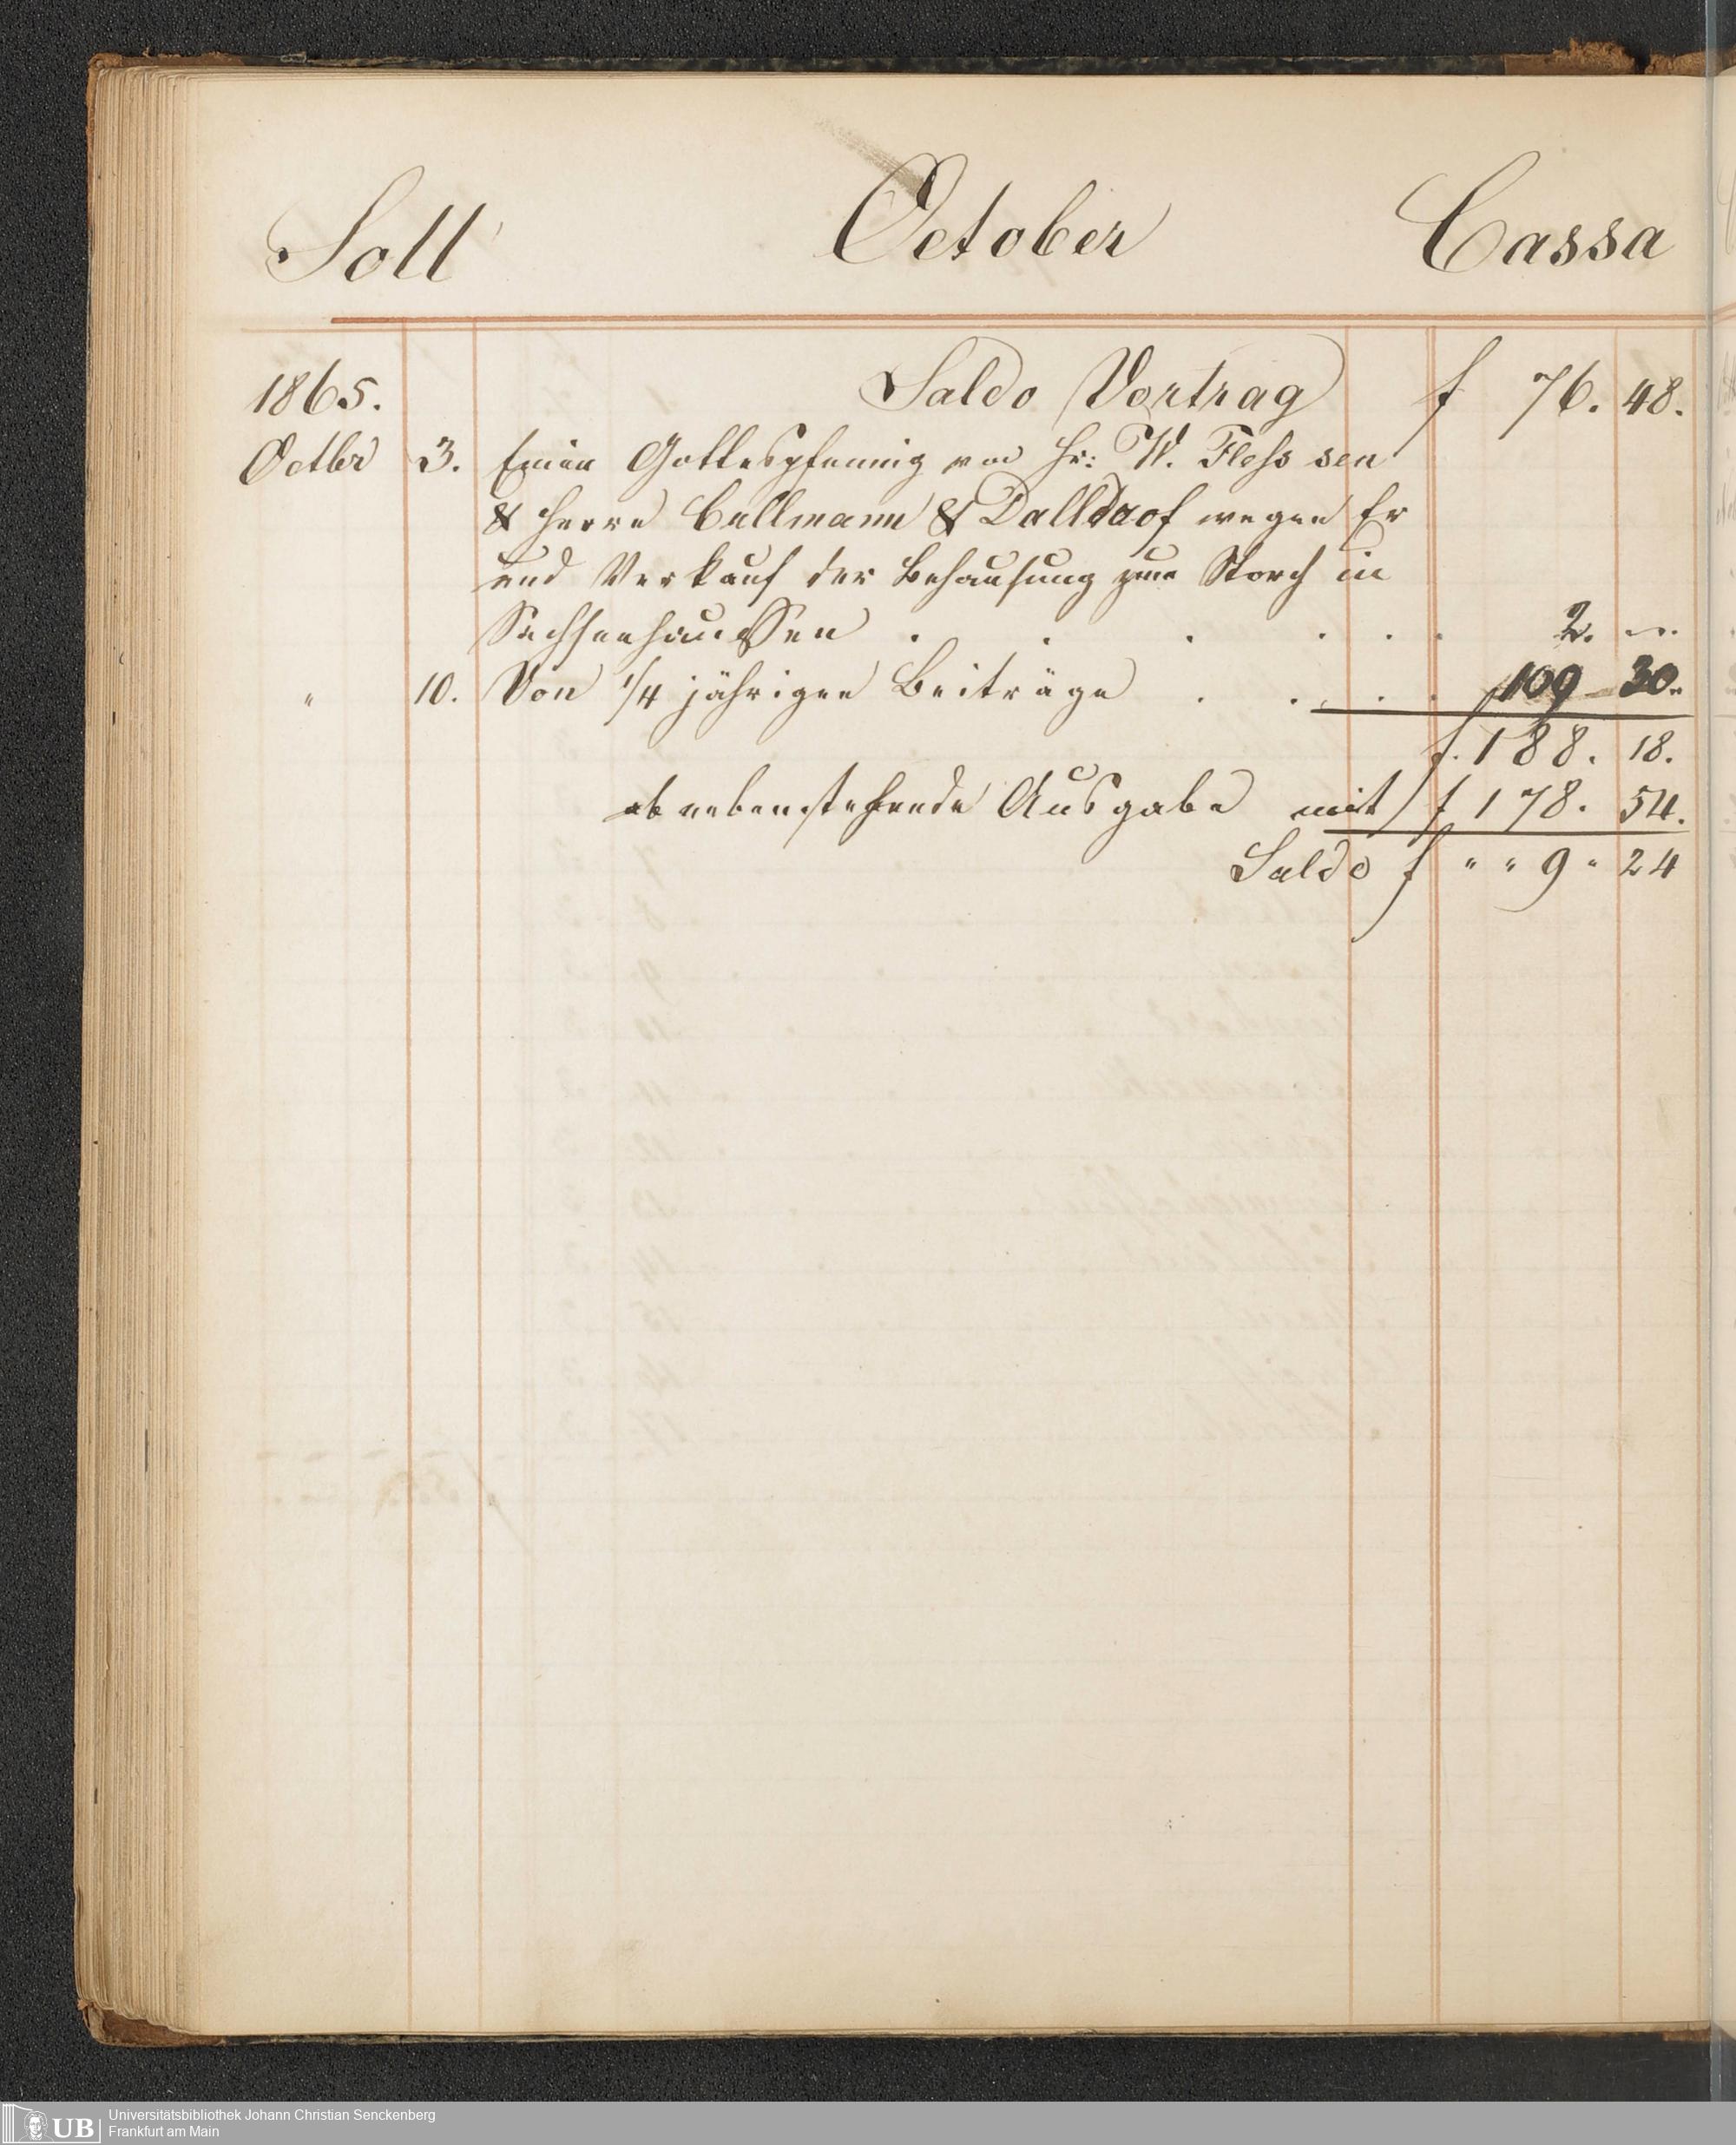 Soll October Cassa
1865. Saldo Vortrag f 76. 48.
Octbr 3. Einen Gottespfennig von Hr: W. Flesh sen
& Herrn Cullmann & Dalldorf wegen Er
und Verkauf der Behausung zum Storch in
Sachsenhaussen . . . . . . 2. "
" 10. Von 1/4 jährigen Beiträge . . . . 109 30.
f. 188. 18.
ab nebenstehende Ausgabe mit f 178. 54.
Saldo f " " 9 " 24
UB Universitätsbibliothek Johann Christian Senckenberg
Frankfurt am Main